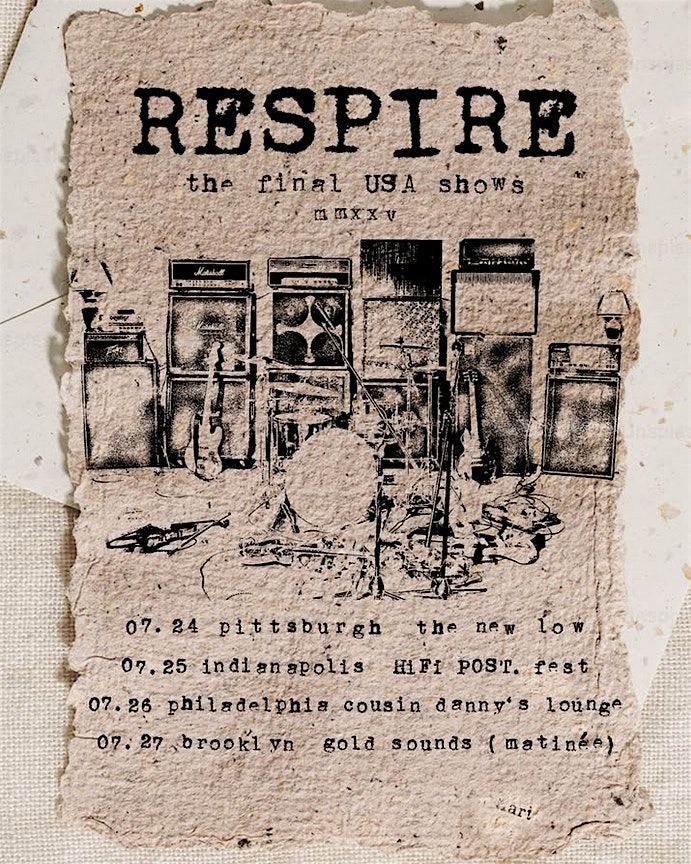 RESPIRE
the final USA shows
mmxxv
Marshall
07.24 pittsburgh the new low
07.25 indianapolis HiFi POST. fest
07.26 philadelphia cousin danny's lounge
07.27 brooklyn gold sounds (matinée)